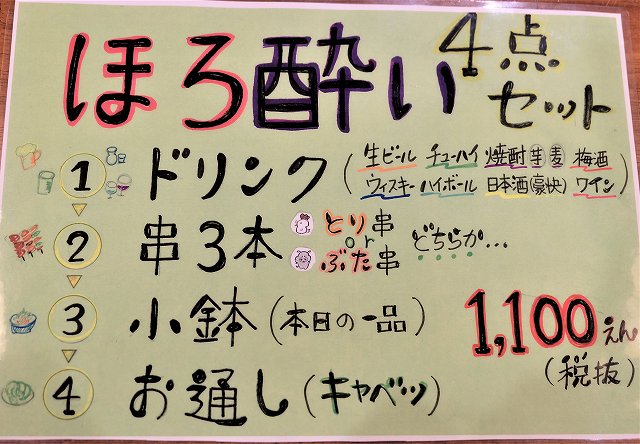 ほろ酔い4点セット
① ドリンク (生ビール チューハイ 焼酎 芋 麦 梅酒
ウィスキー ハイボール 日本酒(豪快) ワイン)
② 串3本 とり串 or ぶた串 どちらか…
③ 小鉢 (本日の一品)
④ お通し (キャベツ)
1,100えん
(税抜)